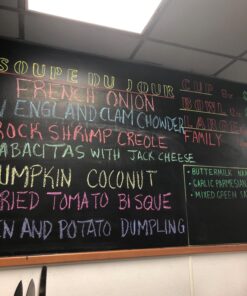 SOUPE DU JOUR
FRENCH ONION
ENGLAND CLAM CHOWDER
ROCK SHRIMP CREOLE
ABACITAS WITH JACK CHEESE
UMPKIN COCONUT
RIED TOMATO BISQUE
EN AND POTATO DUMPLING
CUP 8
BOWL
LARGE
FAMILY
• BUTTERMILK
• GARLIC PARMESIAN
• MIXED GREEN